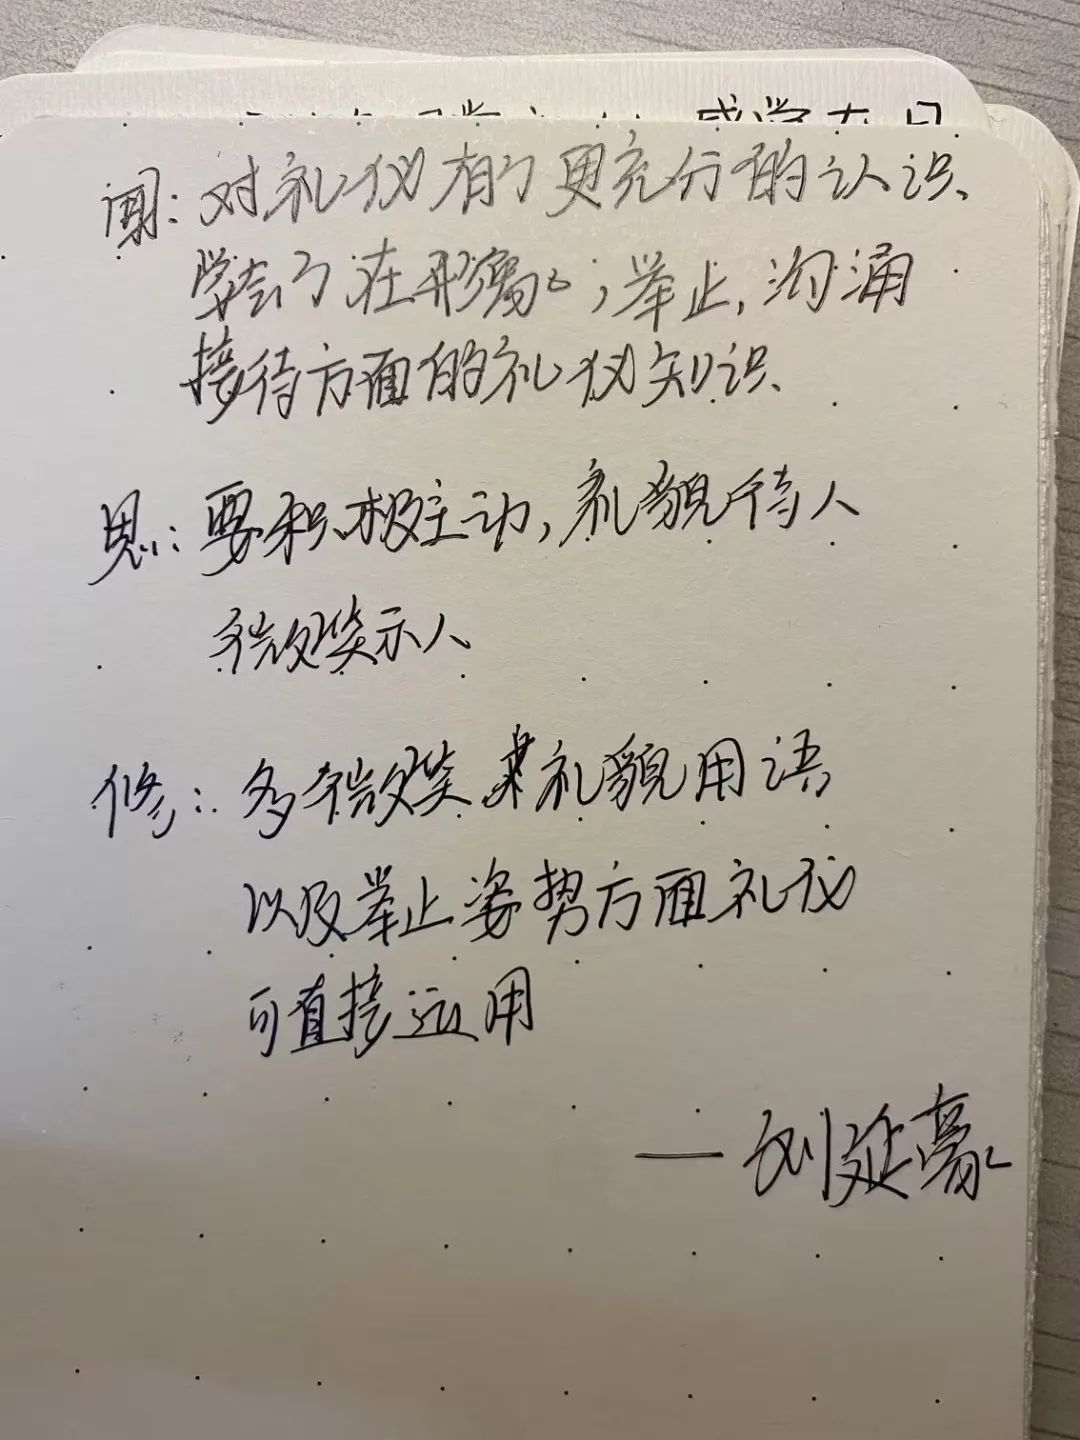 闻:对礼仪有了更充分的认识、
学会了在形象,举止,沟通
接待方面的礼仪知识、
思:要积极主动,礼貌待人
微笑示人
修:多微笑 礼貌用语,
以及举止姿势方面礼仪
可直接运用
— 刘延豪